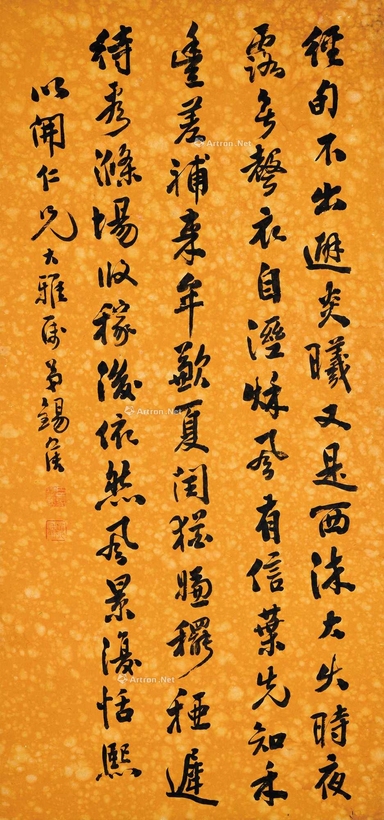 經旬不出避炎曦又是西流大火時夜
露無聲衣自濕秋風有信葉先知禾
豐差補来年歉夏閏猶嫌䆉稏遲
待看滌場收稼後依然風景恬熙
以開仁兄大雅屬 弟錫侯
Artron.Net
Artron.Net
Artron.Net